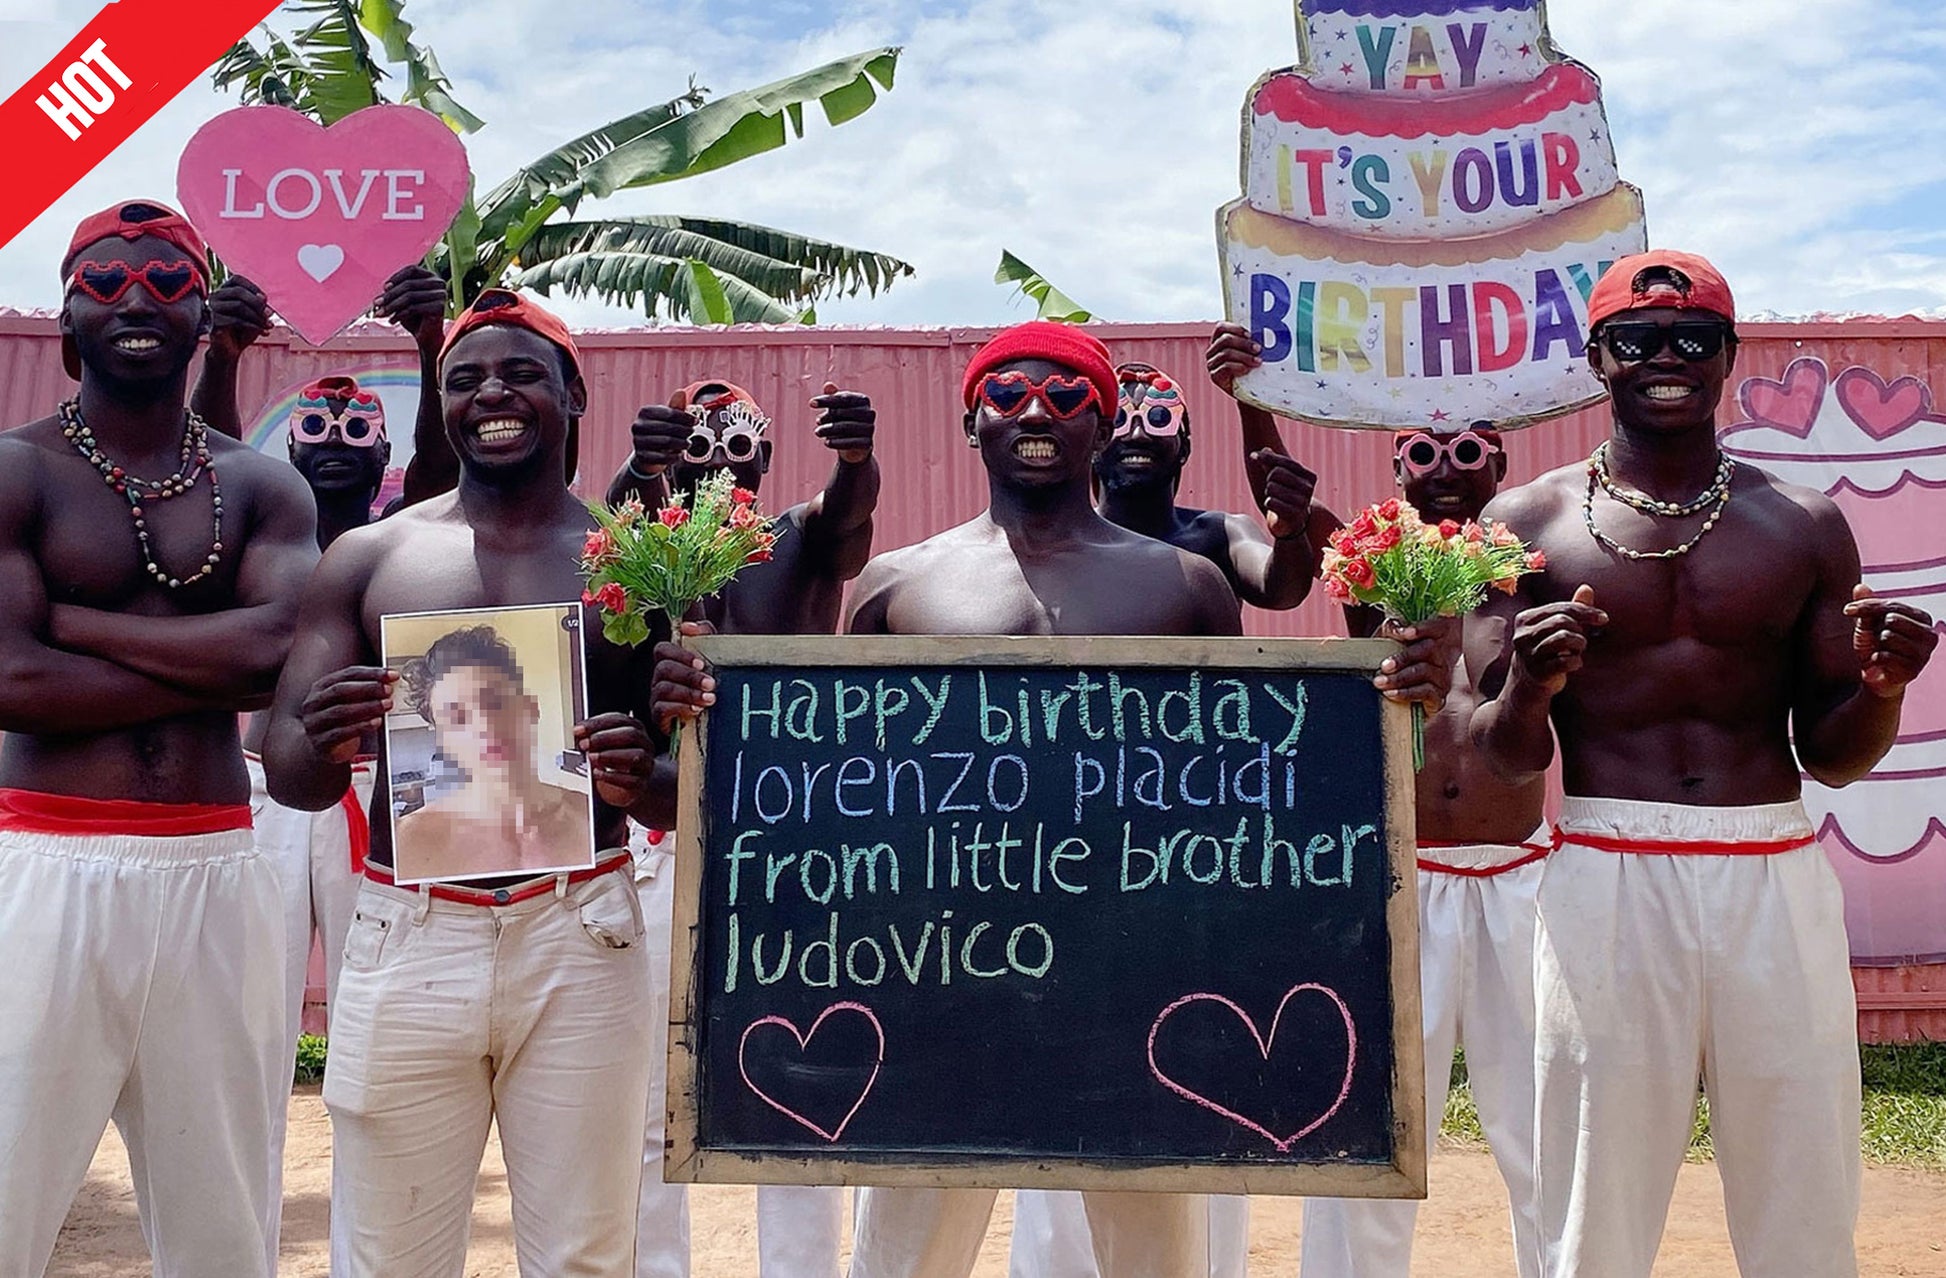 HOT
LOVE
YAY
IT'S YOUR
BIRTHDAY
1/2
Happy birthday
lorenzo placidi
from little brother
ludovico